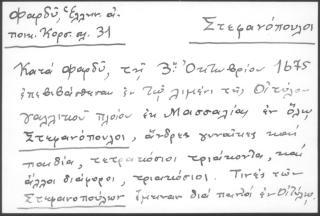 Φαρδύ, Ἑλλην. ἀ-
ποικ. Κορσ. σλ. 31
Στεφανόπουλοι
Κατά Φαρδύ, τῇ 3ῃ Ὀκτωβρίου 1675
ἐπεβιβάσθησαν ἐν τῷ λιμένι τοῦ Οἰτύλου
γαλλικοῦ πλοίου ἐκ Μασσαλίας ἐν ὅλῳ
Στεφανόπουλοι, ἄνδρες γυναῖκες καί
παιδία, τετρακόσιοι τριάκοντα, καί
ἄλλοι διάφοροι, τριακόσιοι. Τινές τῶν
Στεφανοπούλων ἔμειναν διά παντός ἐν Οἰτύλῳ.